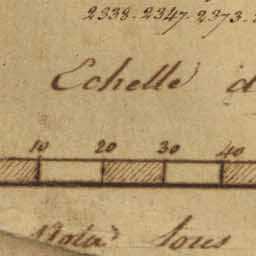 2338. 2347. 2373.
Echelle d
10 20 30 40
Nota tous